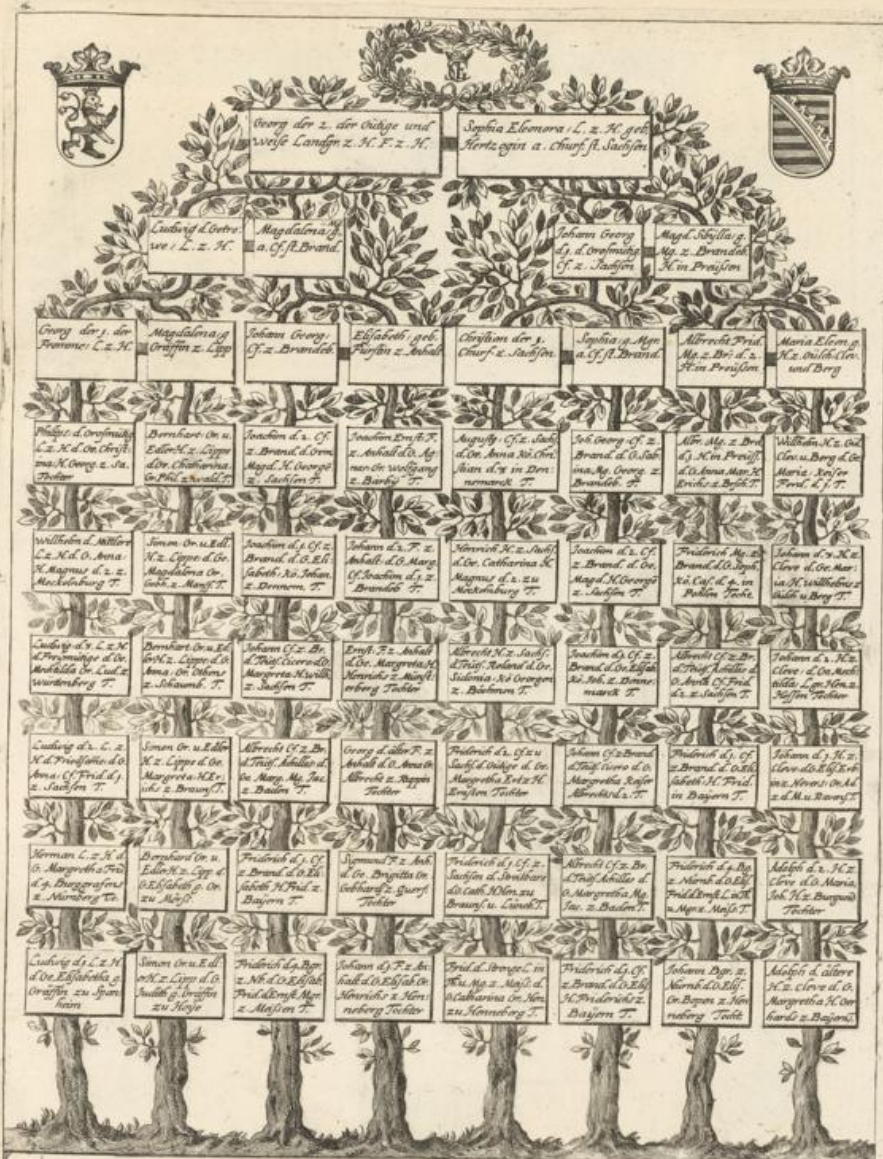 Georg der 2. der Gütige und
weise Landgr. z. H. F. z. H.
Sophia Eleonora: L. z. H. geb.
Hertzogin a. Churf. st. Sachsen
Ludwig d. Getre-
we: L. z. H.
Magdalena: g.
a. Cf. st. Brand.
Johann Georg
d. 1. d. Grosmütig
Cf. z. Sachsen
Magd. Sibylla: g.
Mg. z. Brandeb.
H. in Preüssen
Georg der 1. der
Fromme: L. z. H.
Magdalena: g
Gräffin z. Lipp
Johann Georg:
Cf. z. Brandeb.
Elisabeth: geb.
Fürstin z. Anhalt
Christian der 1.
Churf. z. Sachsen.
Sophia: g. Mgr.
a. Cf. st. Brand
Albrecht Frid.
Mg. z. Br: d. 2.
H. in Preüssen
Maria Eleon. g.
H. z. Gülch. Clev.
und Berg
Philips: d. Grosmütig
L. z. H. d. Ge. Christi-
na H. Georg. z. Sa.
Tochter
Bernhart: Gr. u.
Edler H. z. Lippe
d. Gr. Chatharina
Gr. Phil. z. Wald. T.
Joachim d. 2. Cf.
z. Brand. d. Gem
Magd. H. Georgē
z. Sachsen T.
Joachim Ernst: F.
z. Anhalt d. G. Ag-
nes Gr. Wolfgang
z. Barbÿ T.
Augustg: Cf. z. Sachs
d. Ge. Anna Kö. Chri
stian d. 3 in Den-
nemarck T.
Joh. Georg: Cf. z.
Brand. d. G. Sab
ina. Mg. Georg. z.
Brandeb. T.
Albr. Mg. z. Brd
d. 1. H. in Preüss.
d. G. Anna Mar. H.
Erichs z. Brsch. T.
Willhelm H. z. Gül
Clev. u. Berg d. Ge.
Maria: Keiser
Ferd. d. 1. T.
Willhelm d. Mittlere
L. z. H. d. G. Anna:
H. Magnus d. 2. z
Meckelnburg T.
Simon Gr. u. Edl.
H. z. Lippe: d. Ge.
Magdalena Gr.
Gebh. z. Mansf. T.
Joachim d. 1. Cf. z.
Brand. d. G. Eli-
sabeth: Kö. Johan.
z. Dennem. T.
Johann d. 2. F. z.
Anhalt: d. G. Marg.
Cf. Joachim d. 1. z.
Brandeb T.
Henrich H. z. Sachs.
d. Ge. Catharina H
Magnus d. 2. zu
Meckelnburg T.
Joachim d. 2. Cf.
z. Brand. d. Ge.
Magd. H. Georgē
z. Sachsen T.
Friderich Mg. z.
Brand. d. G. Soph.
Kö. Cas. d. 4. in
Pohlen Tocht.
Johann d. 3. H. z.
Cleve d. Ge. Mar-
ia H. Willhelms z
Gülch u. Berg T.
Ludwig. d. 3. L. z. H
d. Freymütige d. Ge.
Mechtilda Gr. Lud. z
Würtenberg T.
Bernhart: Gr. u. Ed
ler H. z. Lippe: d. G.
Anna: Gr. Othens
z Schaumb. T.
Johann Cf. z. Br.
d. Teüts. Cicero d. G.
Margreta H. Willh.
z. Sachsen T.
Ernst: F. z. Anhalt
d. Ge. Margreta H.
Henrichs z. Münst-
erberg Tochter
Albrecht H. z. Sachs.
d. Teüts. Roland d. Ge.
Sidonia: Kö Georgen
z. Böhmen T.
Joachim d. 1. Cf. z.
Brand. d. Ge. Elisab.
Kö. Joh. z. Denne-
marck T.
Albrecht Cf. z. Br.
d. Teüts. Achilles d.
G. Anna Cf. Frid.
d. 2 z. Sachsen T.
Johann d. 2. H. z.
Cleve: d. Ge. Mech
tilda: Lgr. Hen. z.
Hessen Tochter
Ludwig d. 2. L. z.
H. d. Friedsame: d. G.
Anna: Cf. Frid. d. 1.
z. Sachsen T.
Simon Gr. u. Edler
H. z. Lippe d. Ge.
Margreta: H. Er-
ichs z. Brauns. T.
Albrecht Cf. z. Br.
d. Teüts. Achilles d.
Ge Marg. Mg. Jac
z. Baden T.
Georg d. älter F. z
Anhalt d. G. Anna Gr.
Albrecht z. Ruppin
Tochter
Friderich d. 2. Cf. zu
Sachs. d. Gütige d. Ge.
Margretha Ertz H.
Ernsten Tochter
Johann Cf. z Brand
d. Teüts. Cicero d. G.
Margretha Kaiser
Albrechts d. 2. T.
Friderich d. 1. Cf.
z. Brand d. G. Eli
sabeth: H. Frid.
in Baÿern T.
Johann d. 1. H. z.
Cleve d. G. Elis. Erb
in z. Nevers: Gr. Ad
z d. M. u. Ravens. T.
Herman L. z H d.
G. Margretha Frid
d. 4. Burggrafens
z. Nürnberg To.
Bernhard Gr. u.
Edler H. z. Lipp d.
G Elisabeth g. Gr.
zu Mörsz.
Friderich d. 1. Cf.
z. Brand d. G. Eli
sabeth H. Frid. z
Baijern T.
Sigmund F. z Anh.
d. Ge. Brigitta Gr.
Gebhard z. Querf.
Tochter
Friderich d. 1. Cf. z.
Sachsen d. Streitbare
d. G. Cath. H Hen. zu
Brauns. u. Lüneb. T.
Albrecht Cf. z. Br.
d. Teüts. Achilles d.
G. Margretha Mg.
Jac. z. Baden T.
Friderich d. 4. Bg.
z. Nürnb. d. G. Elis.
Frid. d. Ernst. L. in Th.
u. Mgr. z. Meiss. T.
Adolph d. 2. H. z
Cleve d. G. Maria,
Joh. H. z. Burgund
Tochter
Ludwig d. 1. L. z. H
d. Ge. Elisabetha g.
Gräffin zu Span
heim
Simon Gr. u. Edl
er H. z. Lipp d. G.
Judith g. Gräffin
zu Hoÿe
Friderich d. 4. Bgr.
z. Nb. d. G. Elisab.
Frid. d. Ernst. Mgr.
z. Meissen T.
Johann d. 1. F. z. An
halt d. G. Elisab. Gr.
Henrichs z. Hen:
neberg Tochter
Frid. d. Strenge L. in
Th. u. Mg. z. Meiss. d.
G. Catharina Gr. Hen.
zu Henneberg T.
Friderich d. 1. Cf.
z. Brand. d. G. Elis
H. Friderichs z.
Baÿern T.
Johann Bgr. z.
Nürnb. d. G. Elis.
Gr. Bopen z Hen
neberg Tocht
Adolph d. ältere
H. z. Cleve d. G.
Margretha H. Ger
hards z. Baÿern T.